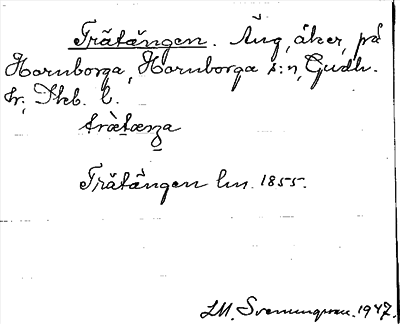 Trätängen. Äng, åker, på
Hornborga, Hornborga s:n, Gudh.
hr; Skb. l.
trætæŋa
Trätängen lm. 1855.
LM. Svenungsson. 1947.